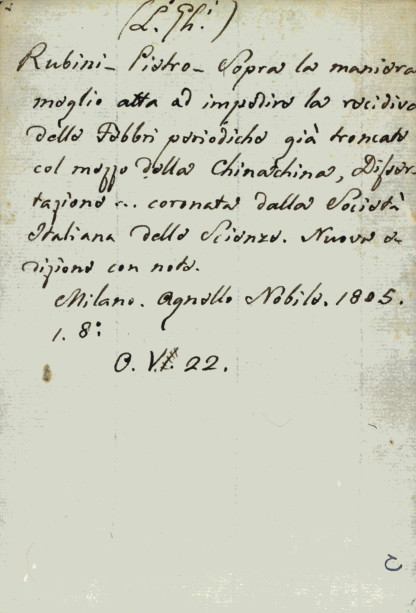 (L. Gh.i)
Rubini - Pietro - Sopra la maniera
meglio atta ad impedire la recidiva
delle Febbri periodiche già troncate
col mezzo della Chinachina, Disser-
tazione ... coronata dalla Società
Italiana delle Scienze. Nuova e-
dizione con note.
Milano. Agnello Nobile. 1805.
1. 8:º
O. V. 22.